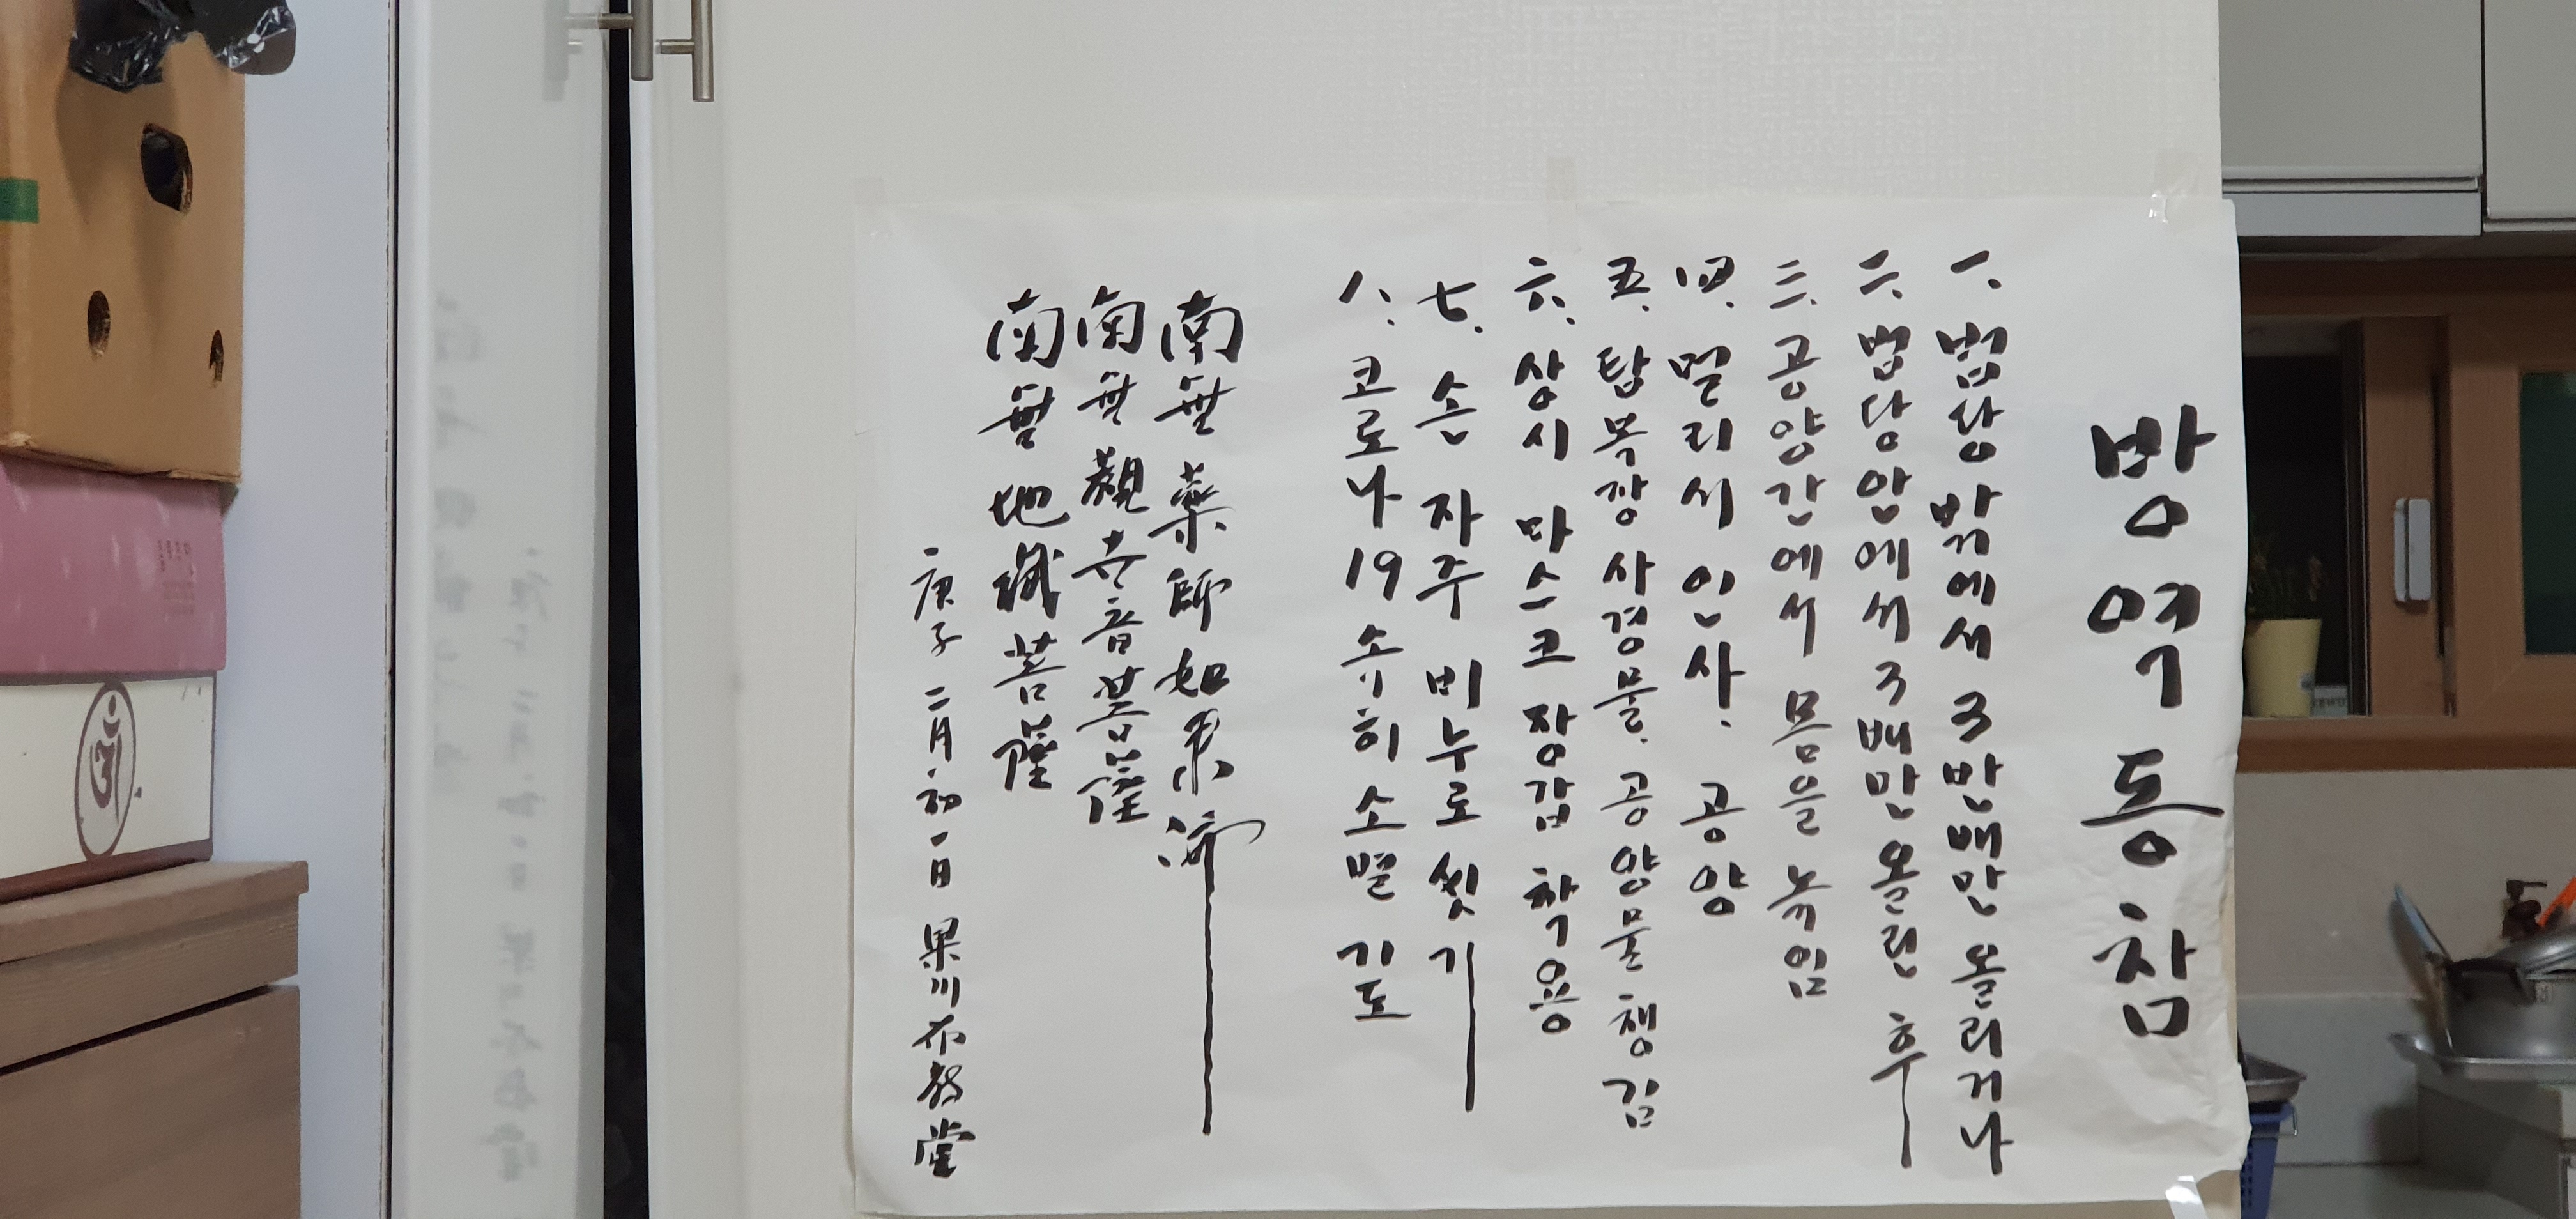 방역동참
一. 법당 밖에서 3반배만 올리거나
二. 법당 안에서 3배만 올린 후
三. 공양간에서 몸을 녹임
四. 멀리서 인사. 공양
五. 탑목장 사경물. 공양물 챙김
六. 상시 마스크 장갑 착용
七. 손 자주 비누로 씻기
八. 코로나19 속히 소멸 기도
南無藥師如來佛
南無觀世音菩薩
南無地藏菩薩
庚子 二月 初一日 果川布敎堂